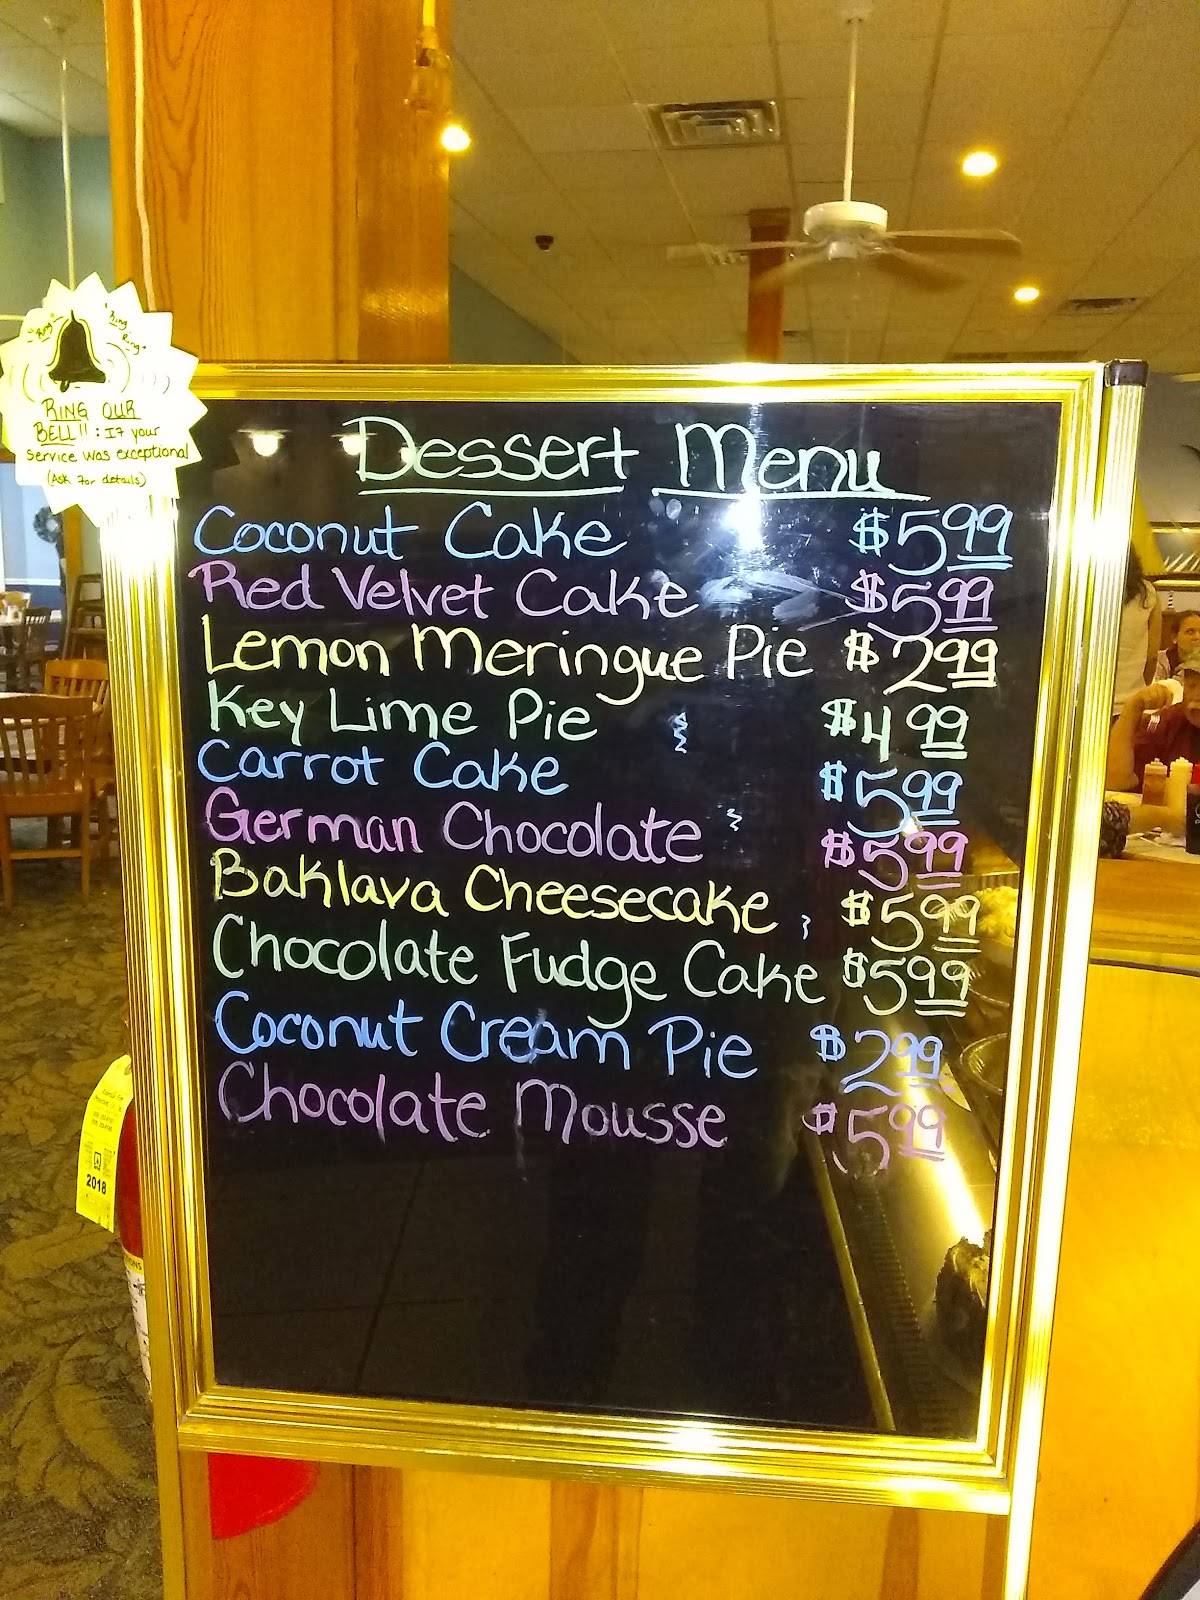 Ring
Ring
Ring
RING OUR
BELL!! : If your
service was exceptional
(Ask for details)
Dessert Menu
Coconut Cake $5.99
Red Velvet Cake $5.99
Lemon Meringue Pie $2.99
Key Lime Pie $4.99
Carrot Cake $5.99
German Chocolate $5.99
Baklava Cheesecake $5.99
Chocolate Fudge Cake $5.99
Coconut Cream Pie $2.99
Chocolate Mousse $5.99
2018